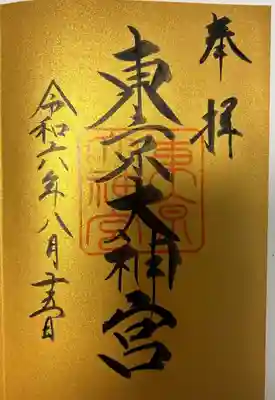 奉拝
東京大神宮
令和六年八月五日
東京
大神宮